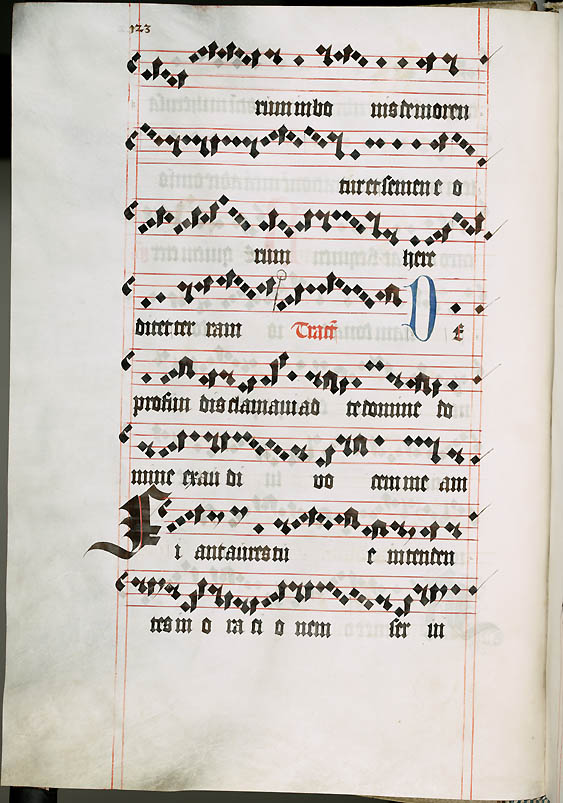 123
rum in bo nis demoren
tur et semen e o
rum here
ditet ter ram Tract9 D E
profun dis clamaui ad te domine do
mine exau di uo cem me am
F i ant aures tu e intenden
tes in o ra ci o nem ser ui